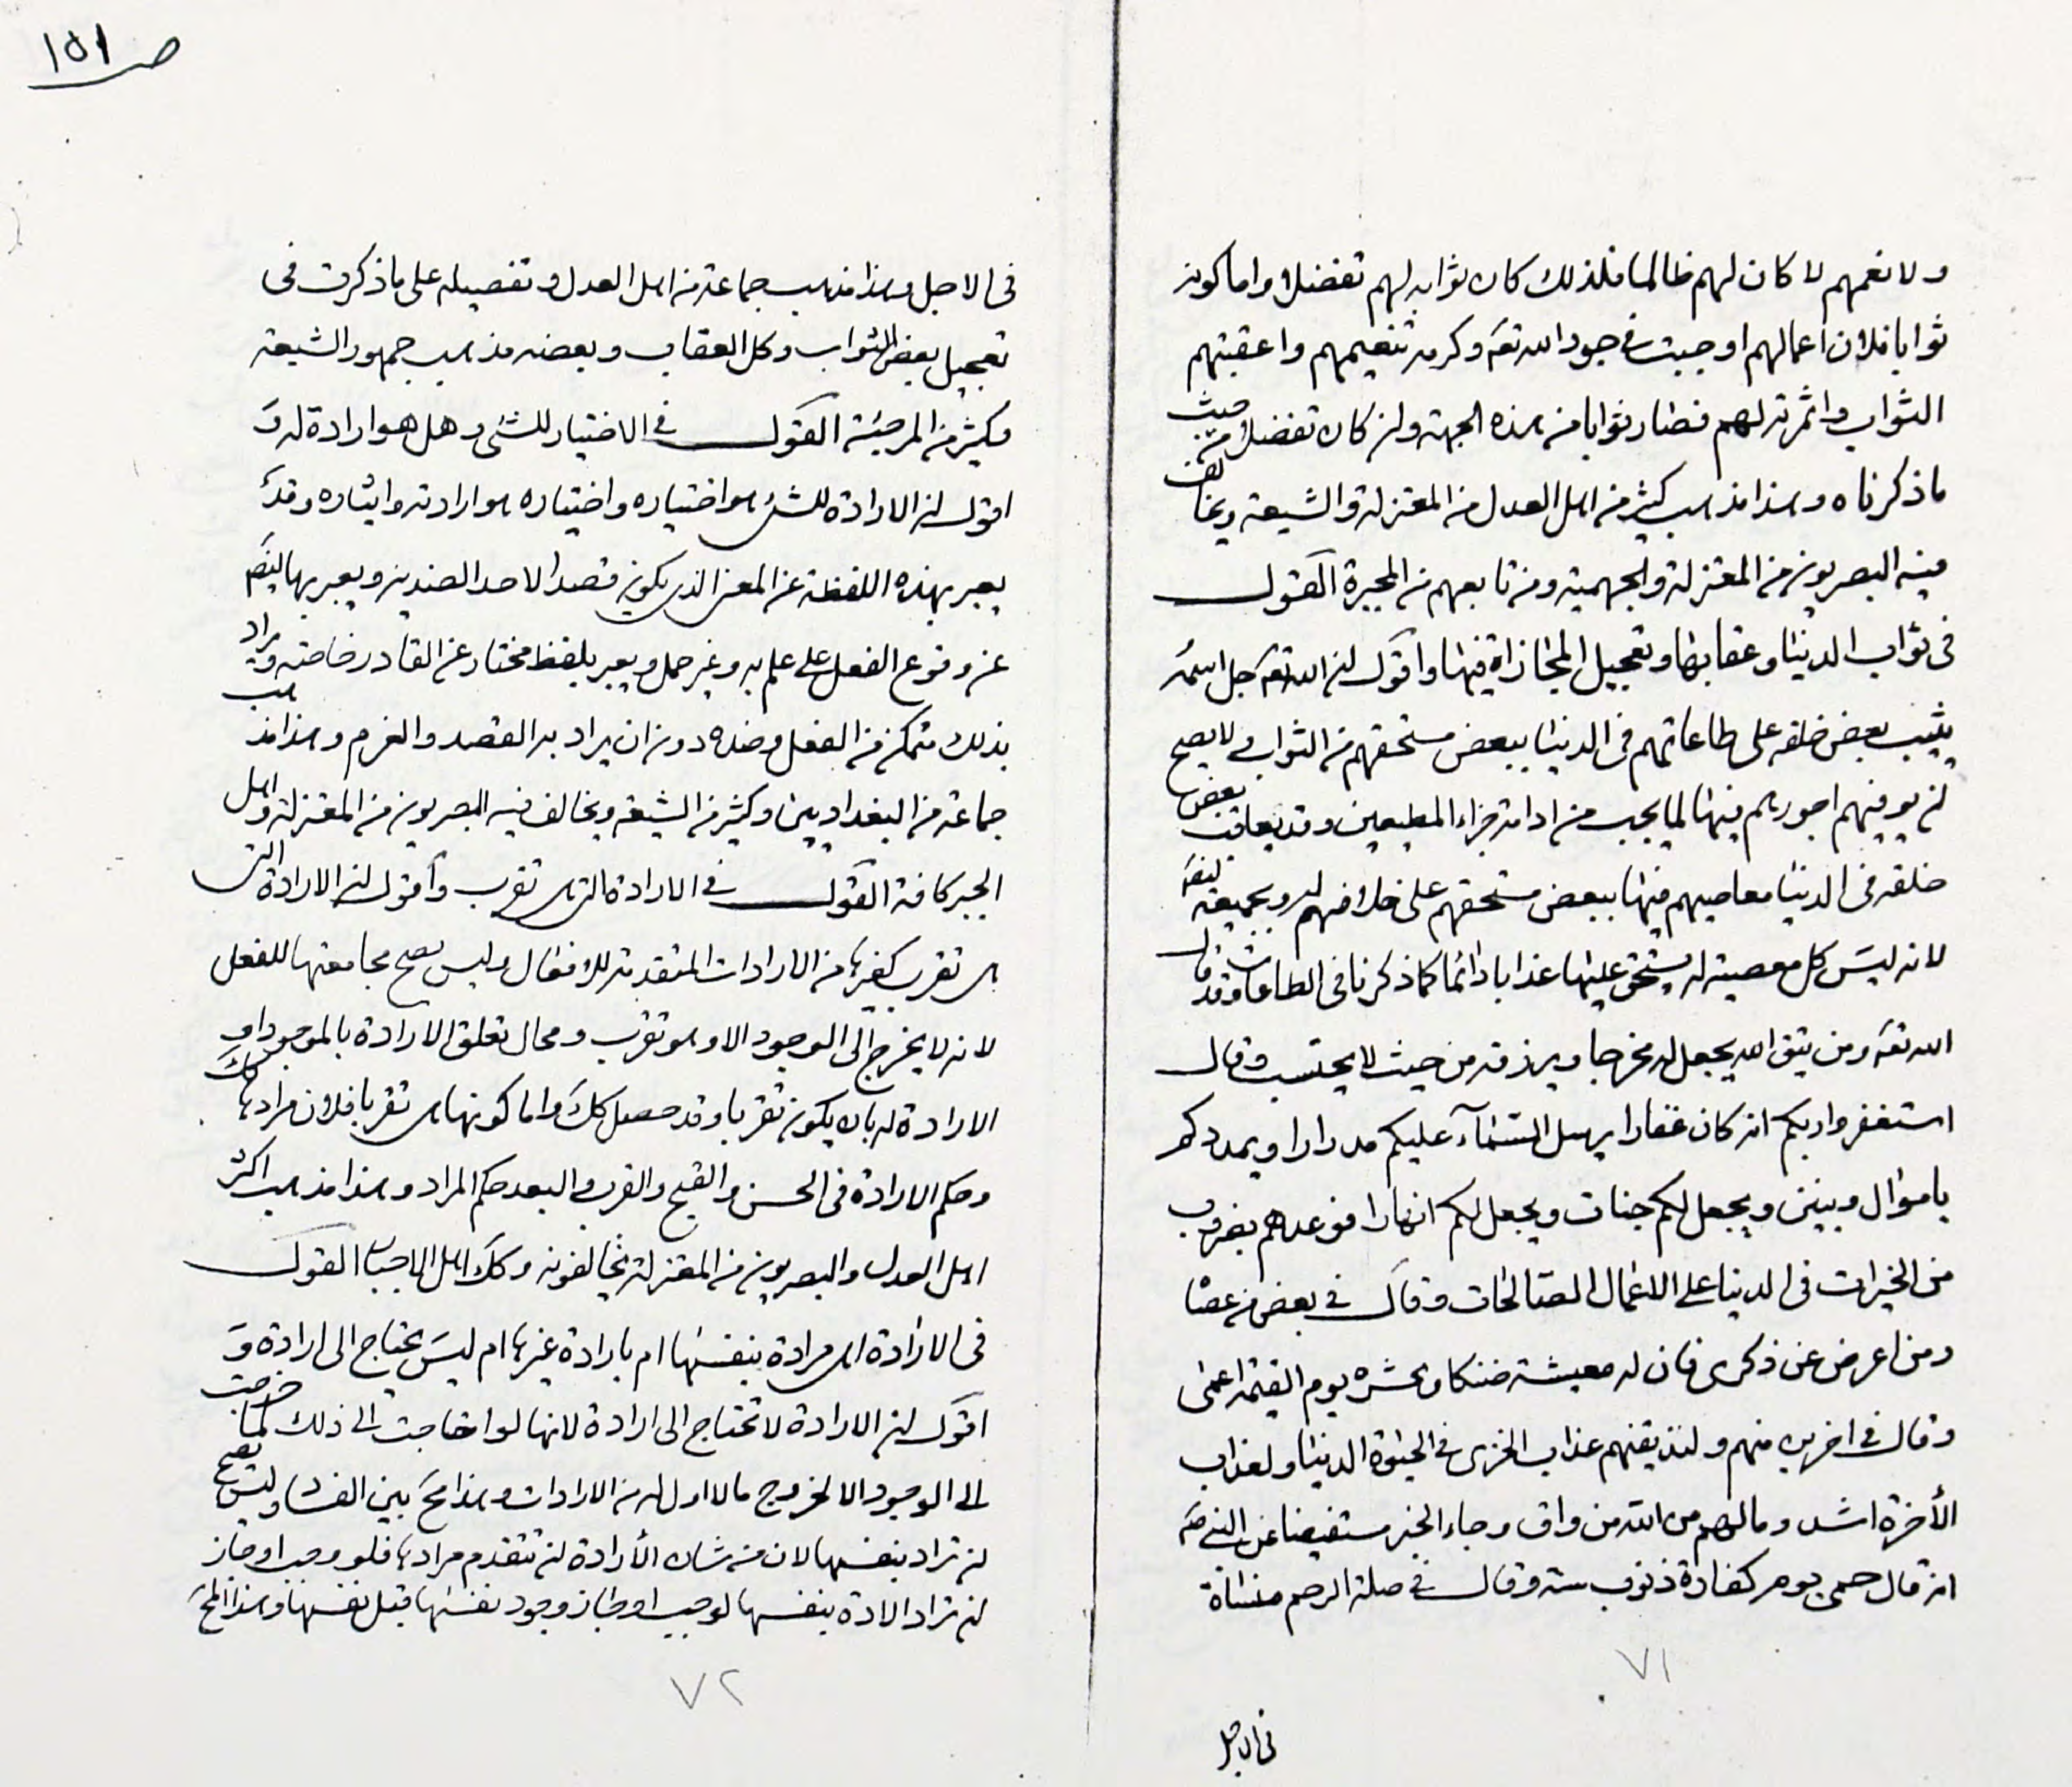 ص ١٥١
ولا نعمهم لا كان لهم ظالما فلذلك كان ثوابه لهم تفضلا واما كونه
ثوابا فلان اعمالهم اوجبت فى جود الله تعـ وكرمه تنعيمهم واعقبتهم
الثواب واثمرته لهم فصار ثوابا من هذه الجهة ولن كان تفضلا من حيث
ما ذكرناه وهذا مذهب كثير من اهل العدل من المعتزلة والشيعة ويخالف
فيه البصريون من المعتزلة والجهمية ومن تابعهم من المجبرة القول
فى ثواب الدنيا وعقابها وتعجيل المجازاة فيها واقول ان الله تعـ جل اسمه
يثيب بعض خلقه على طاعاتهم فى الدنيا ببعض مستحقهم من الثواب ولا يصح
ان يوفيهم اجورهم فيها لما يجب من ادامة جزاء المطيعين وقد يعاقب بعض
خلقه فى الدنيا معاصيهم فيها ببعض مستحقهم على خلافهم له وبجميعه ايضـ
لانه ليس كل معصية له يستحق عليها عذابا دائما كما ذكرنا فى الطاعات وقد قال
الله تعـ ومن يتق الله يجعل له مخرجا ويرزقه من حيث لا يحتسب وقال
استغفروا ربكم انه كان غفارا يرسل السّمآء عليكم مدرارا ويمددكم
باموال وبنين ويجعل لكم جنات ويجعل لكم انهارا فوعدهم بضروب
من الخيرات فى الدنيا على الاعمال الصّالحات وقال فى بعض من عصاه
ومن اعرض عن ذكرى فان له معيشة ضنكا ونحشره يوم القيمة اعمى
وقال فى اخرين منهم ولنذيقنهم عذاب الخزى فى الحيوة الدنيا ولعذاب
الأخرة اشد ومالهم من الله من واق وجاء الخبر مستفيضا عن النبى صـ
انه قال حمى يوم كفارة ذنوب سنة وقال فى صلة الرحم منساة
٧١
فى الاجل
فى الاجل وهذا مذهب جماعة من اهل العدل وتفصيله على ما ذكرت فى
تعجيل بعض الثواب وكل العقاب وبعضه مذهب جمهور الشيعة
وكثير من المرجئة القول فى الاختيار للشئ وهل هو ارادة له و
اقول ان الارادة للشئ هو اختياره واختياره هو ارادته وايثاره وقد
يعبر بهذه اللفظة عن المعنى الذى يكون قصدا لاحد الضدين ويعبر بها ايضـ
عن وقوع الفعل على علم به وغير حمل ويعبر بلفظ مختار عن القادر خاصة ويراد
بذلك متمكن من الفعل وضده دون ان يراد به القصد والعزم وهذا مذهب
جماعة من البغداديين وكثير من الشيعة ويخالف فيه البصريون من المعتزلة واهل
الجبر كافة القول فى الارادة التى هى تقرب وأقول ان الارادة التى
هى تقرب كغيرها من الارادات المتقدمة للافعال وليس يصح مجامعتها للفعل
لانه لا يخرج الى الوجود الا وهو تقرب ومحال تعلق الارادة بالموجود او
الارادة له بان يكون تقربا وقد حصل كك واما كونها هى تقربا فلان مرادها كك
وحكم الارادة فى الحسن والقبح والقرب والبعد حكم المراد وهذا مذهب اكثر
اهل العدل والبصريون من المعتزلة يخالفونه وكك اهل الاجبار القول
فى الارادة اهى مرادة بنفسها ام بارادة غيرها ام ليس يحتاج الى ارادة و
اقول ان الارادة لا تحتاج الى ارادة لانها لو احتاجت الى ذلك لما خرجت
الى الوجود الا لخروج ما لا اول له من الارادات وهذا محـ بين الفساد وليس يصح
ان تراد بنفسها لان من شان الأرادة ان تتقدم مرادها فلو وجب او جاز
ان تراد الارادة بنفسها لوجب او جاز وجود نفسها قبل نفسها وهذا المحـ
٧٢